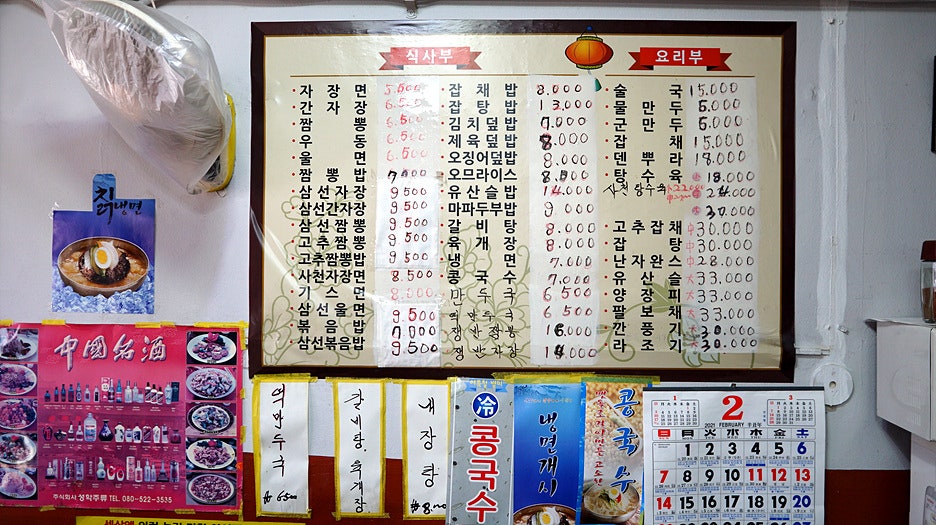 식사부
자장면 5.500
간자장 6.500
짬뽕 6.500
우동 6.500
울면 6.500
짬뽕밥 7000
삼선자장 9.500
삼선간자장 9.500
삼선짬뽕 9.500
고추짬뽕 9.500
고추짬뽕밥 9.500
사천자장면 8.500
기스면 8.000
삼선울면 9.500
볶음밥 7.000
삼선볶음밥 9.500
잡채밥 8.000
잡탕밥 13.000
김치덮밥 7.000
제육덮밥 8.000
오징어덮밥 8.000
오므라이스 8.000
유산슬밥 14.000
마파두부밥 9.000
갈비탕 8.000
육개장 8.000
냉면 7.000
콩국수 7.000
만두국 6.500
떡만두국 6.500
쟁반짬뽕 16.000
쟁반자장 14.000
요리부
술국 15.000
물만두 5.000
군만두 5.000
잡채 15.000
덴뿌라 18.000
탕수육 소 18.000
사천탕수육
중 24.000
30.000
고추잡채 중 30.000
잡탕 중 30.000
난자완스 중 28.000
유산슬 대 33.000
양장피 대 33.000
팔보채 대 33.000
깐풍기 대 30.000
라조기 30.000
칡냉면
中國名酒
주식회사 성학주류 TEL 080-522-3535
떡만두국
₩6500
갈비탕.육개장
내장탕
₩8.000
冷
콩국수
냉면개시
콩국수
1
2
3
2021 FEBRUARY 辛丑年
日 月 火 水 木 金 土
1 2 3 4 5 6
7 8 9 10 11 12 13
14 15 16 17 18 19 20